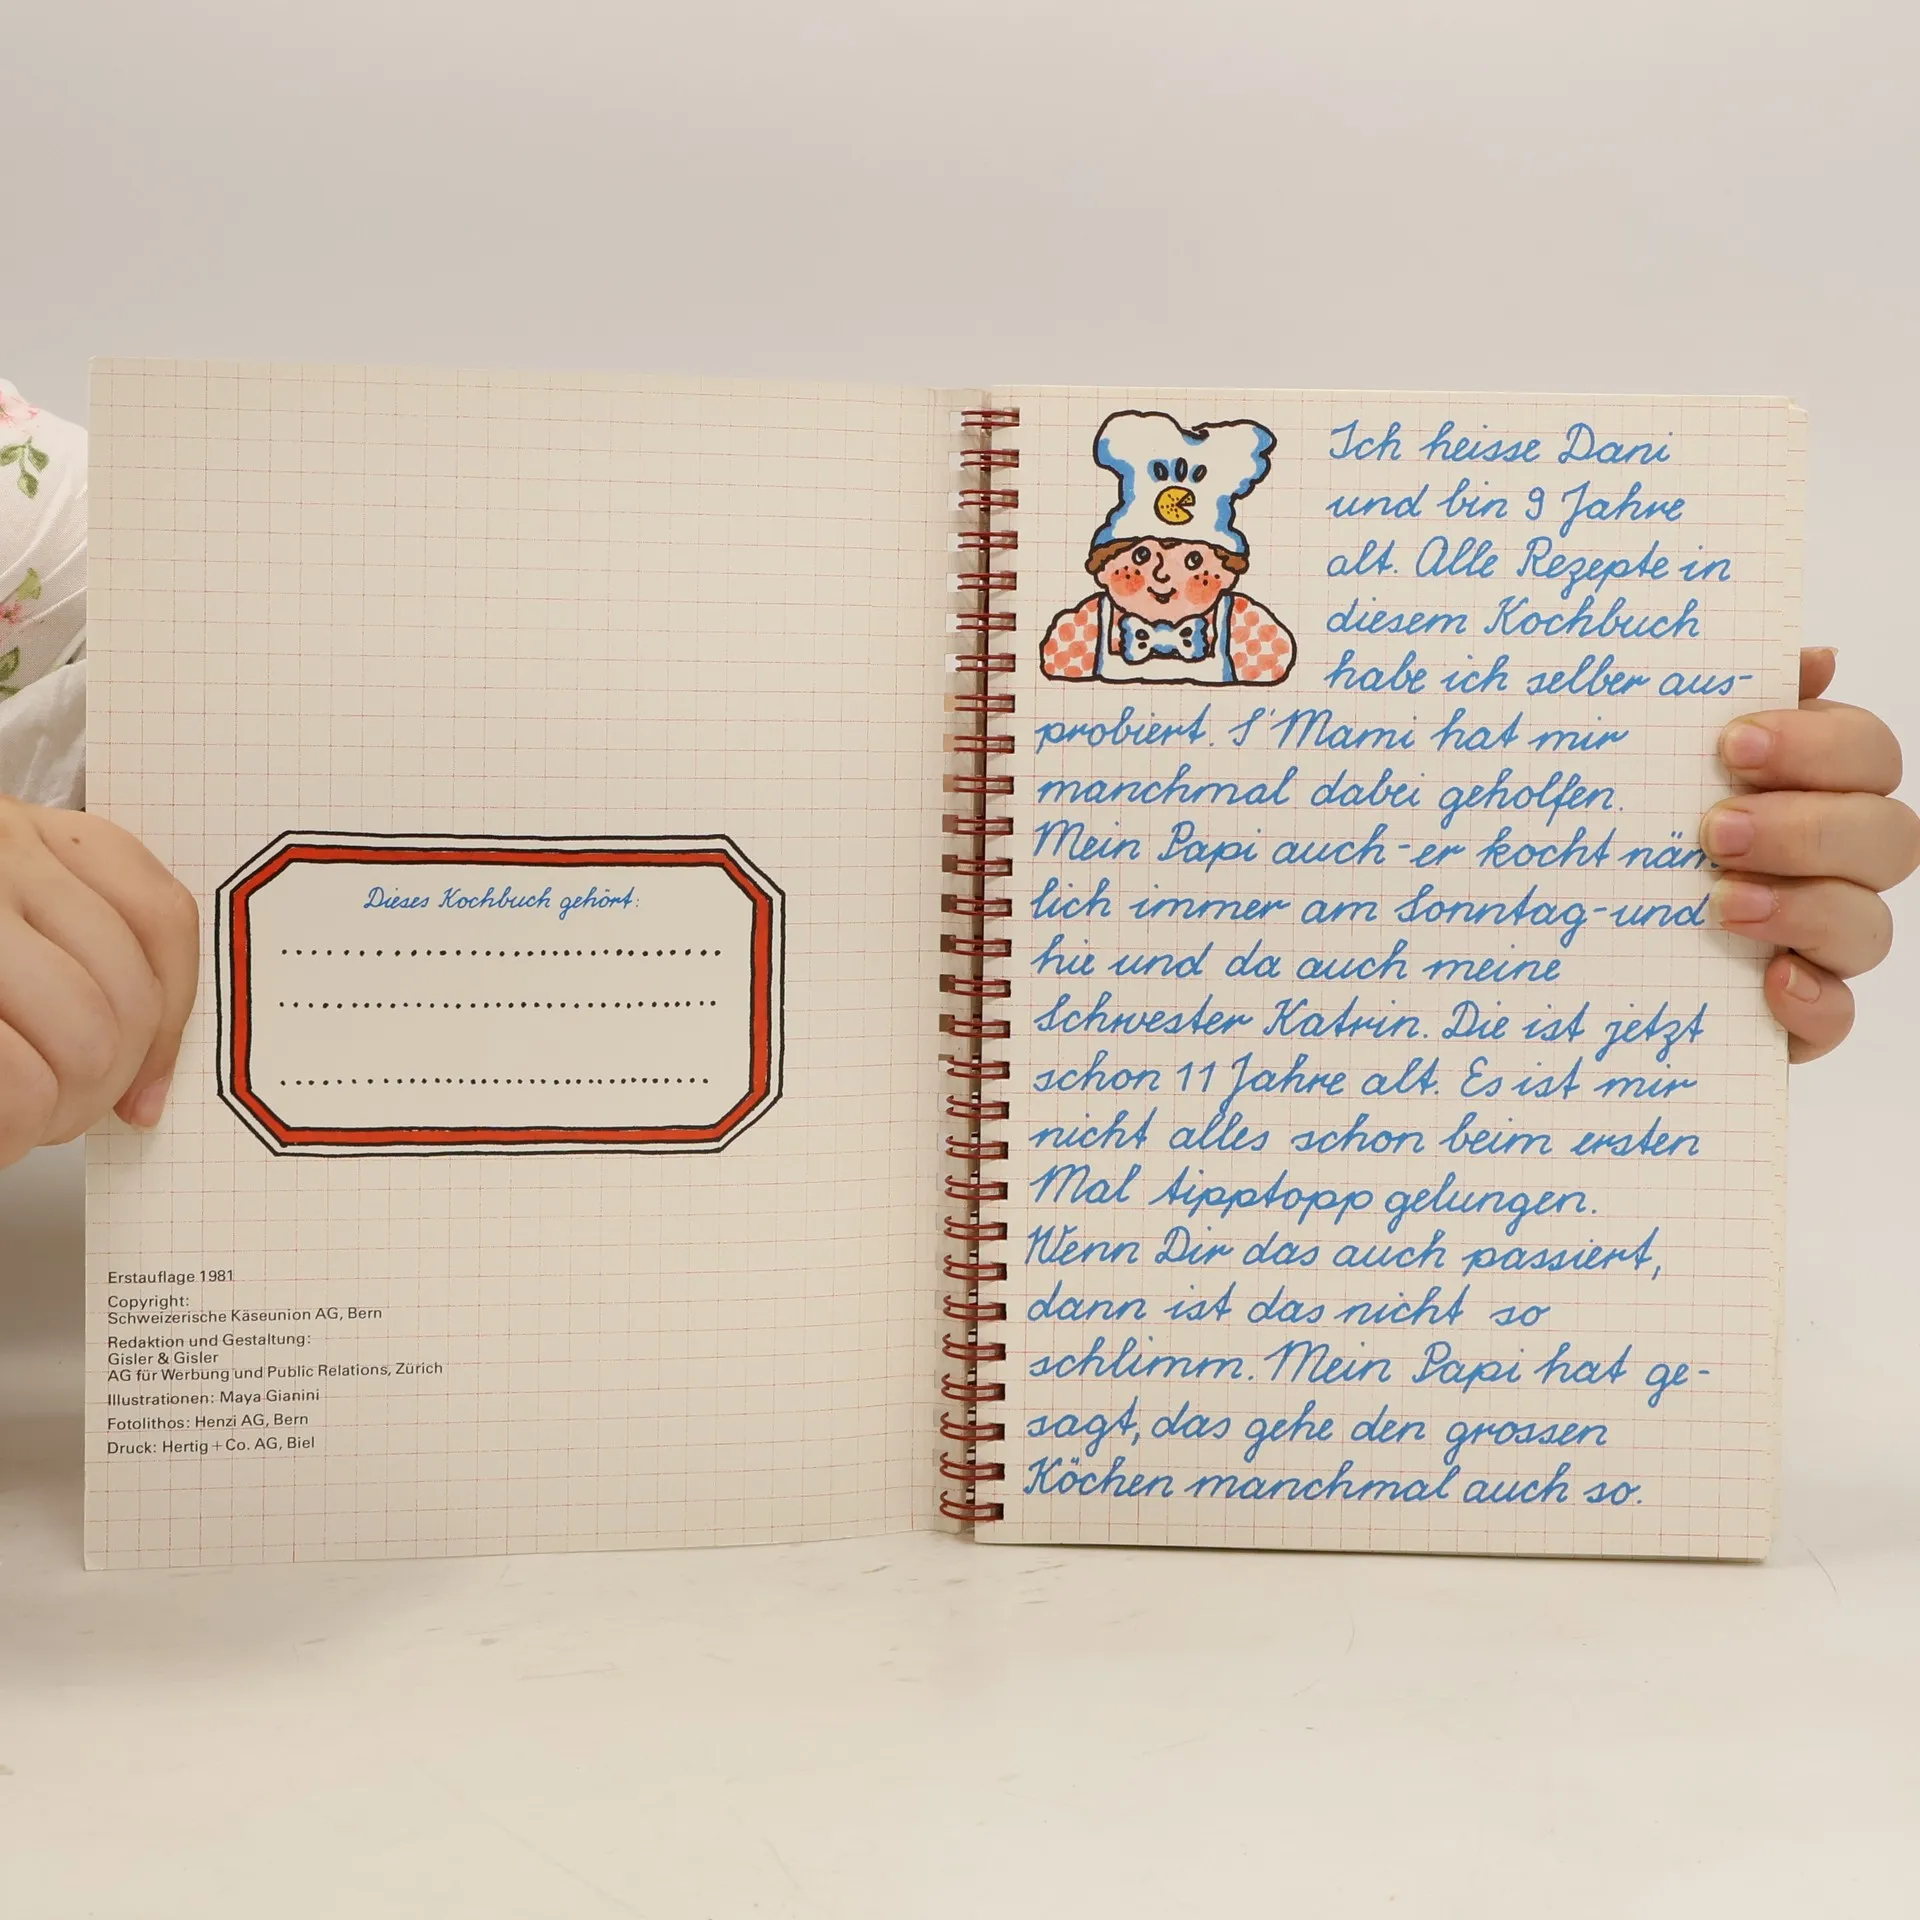 Dieses Kochbuch gehört:
Erstauflage 1981
Copyright:
Schweizerische Käseunion AG, Bern
Redaktion und Gestaltung:
Gisler & Gisler
AG für Werbung und Public Relations, Zürich
Illustrationen: Maya Gianini
Fotolithos: Henzi AG, Bern
Druck: Hertig + Co. AG, Biel
Ich heisse Dani
und bin 9 Jahre
alt. Alle Rezepte in
diesem Kochbuch
habe ich selber aus-
probiert. S'Mami hat mir
manchmal dabei geholfen.
Mein Papi auch - er kocht näm
lich immer am Sonntag - und
hie und da auch meine
Schwester Katrin. Die ist jetzt
schon 11 Jahre alt. Es ist mir
nicht alles schon beim ersten
Mal tipptopp gelungen.
Wenn Dir das auch passiert,
dann ist das nicht so
schlimm. Mein Papi hat ge-
sagt, das gehe den grossen
Köchen manchmal auch so.